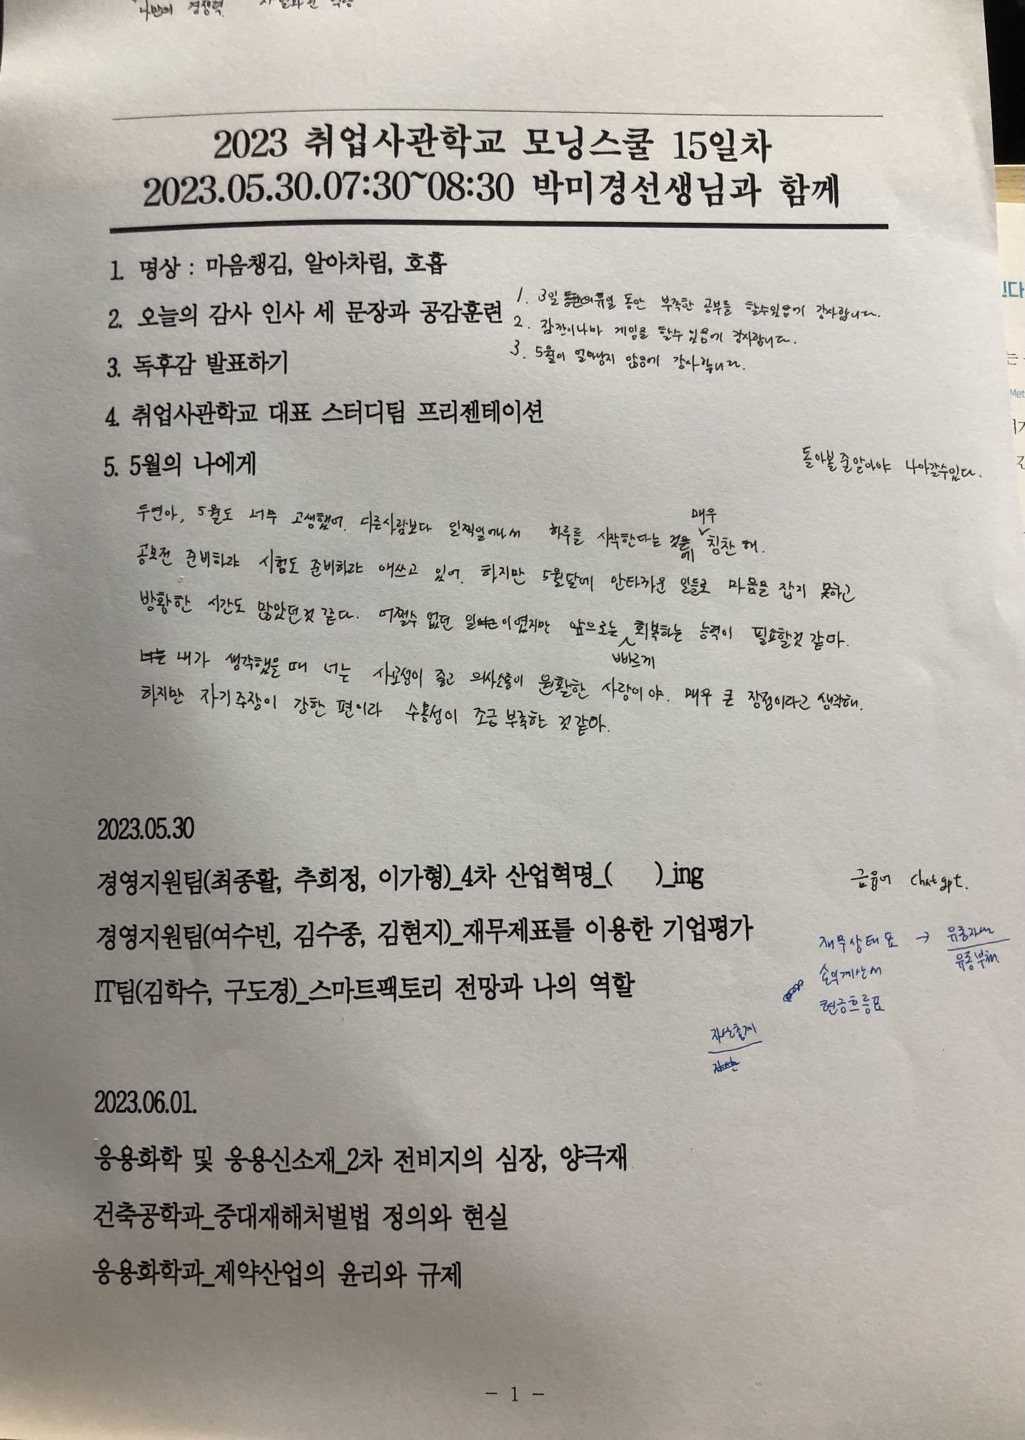 나만의 경쟁력
2023 취업사관학교 모닝스쿨 15일차
2023.05.30.07:30~08:30 박미경선생님과 함께
1. 명상 : 마음챙김, 알아차림, 호흡
2. 오늘의 감사 인사 세 문장과 공감훈련
1. 3일 동안 부족한 공부를 할수있음에 감사합니다.
2. 잠깐이나마 게임을 할수 있음에 감사합니다.
3. 5월이 얼마남지 않음에 감사합니다.
3. 독후감 발표하기
4. 취업사관학교 대표 스터디팀 프리젠테이션
5. 5월의 나에게
돌아볼 줄 알아야 나아갈수있다.
두연아, 5월도 너무 고생했어. 다른사람보다 일찍일어나서 하루를 시작한다는 것에 매우 칭찬해.
공모전 준비하랴 시험도 준비하랴 애쓰고 있어. 하지만 5월달에 안타까운 일들로 마음을 잡지 못하고
방황한 시간도 많았던것 같다. 어쩔수 없던 일이였지만 앞으로는 빠르게 회복하는 능력이 필요할것 같아.
내가 생각했을 때 너는 사교성이 좋고 의사소통이 원활한 사람이야. 매우 큰 장점이라고 생각해.
하지만 자기주장이 강한 편이라 수용성이 조금 부족한 것 같아.
2023.05.30
경영지원팀(최종활, 추희정, 이가형)_4차 산업혁명_( )_ing
금융이 Chat gpt.
경영지원팀(여수빈, 김수종, 김현지)_재무제표를 이용한 기업평가
재무상태표 → 유동자산
유동부채
손익계산서
현금흐름표
IT팀(김학수, 구도경)_스마트팩토리 전망과 나의 역할
자산총계
2023.06.01.
응용화학 및 응용신소재_2차 전비지의 심장, 양극재
건축공학과_중대재해처벌법 정의와 현실
응용화학과_제약산업의 윤리와 규제
- 1 -